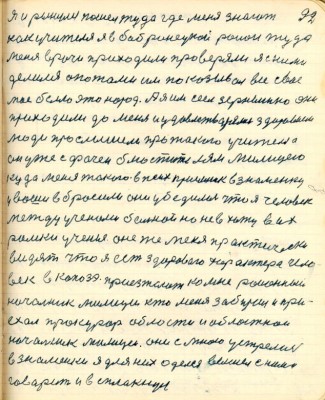 92
Я и решил пошел туда где меня знают
как учителя я в Бобронецкой район туда
меня врачи приходили проверяли я с ними
делился опотами им показывал все свое
мое было это народ. А я им сеел зернышко они
приходили до меня и удовлетворял здоровьем
люди прослышели про такого учителя
он уже с врачем блюстители милицею
куда меня такого в знаменку
увезли вбросили они убедился что я человек
между учеными больной но не вижу в их
учения. они же меня практически
видят что я есть здорового характера чело-
век в колхоз. приезжает ко мне районный
начальник милиции кто меня забирал и при-
ехал прокурор области и областной
начальник милиции. они с мною устрели
в знаменки я для них оделся вышел с ними
говорить и в